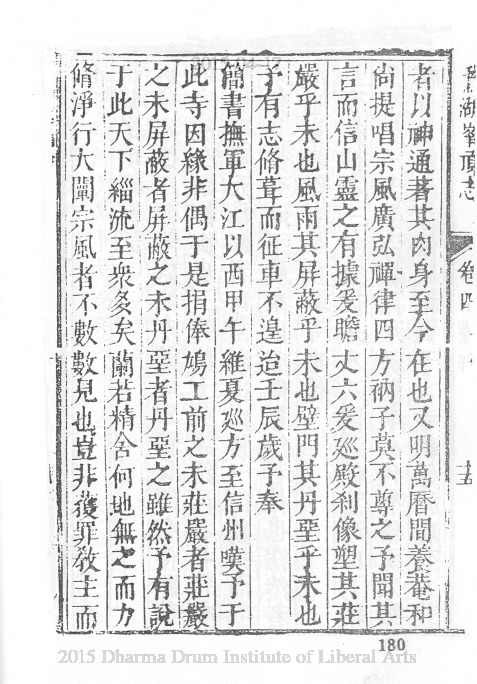 鵝湖峯頂志 卷四 十五
者以神通著其肉身至今在也又明萬曆間養菴和
尙提唱宗風廣弘禪律四方衲子莫不尊之予聞其
言而信山靈之有據爰瞻丈六爰廵殿刹像塑其莊
嚴乎未也風雨其屏蔽乎未也壁門其丹堊乎未也
予有志脩葺而征車不遑迨壬辰歲予奉
簡書撫軍大江以西甲午維夏廵方至信州嘆予于
此寺因緣非偶于是捐俸鳩工前之未莊嚴者莊嚴
之未屏蔽者屏蔽之未丹堊者丹堊之雖然予有說
于此天下緇流至衆矣蘭若精舍何地無之而力
脩淨行大闡宗風者不數數見也豈非獲罪敎主而
180
2015 Dharma Drum Institute of Liberal Arts